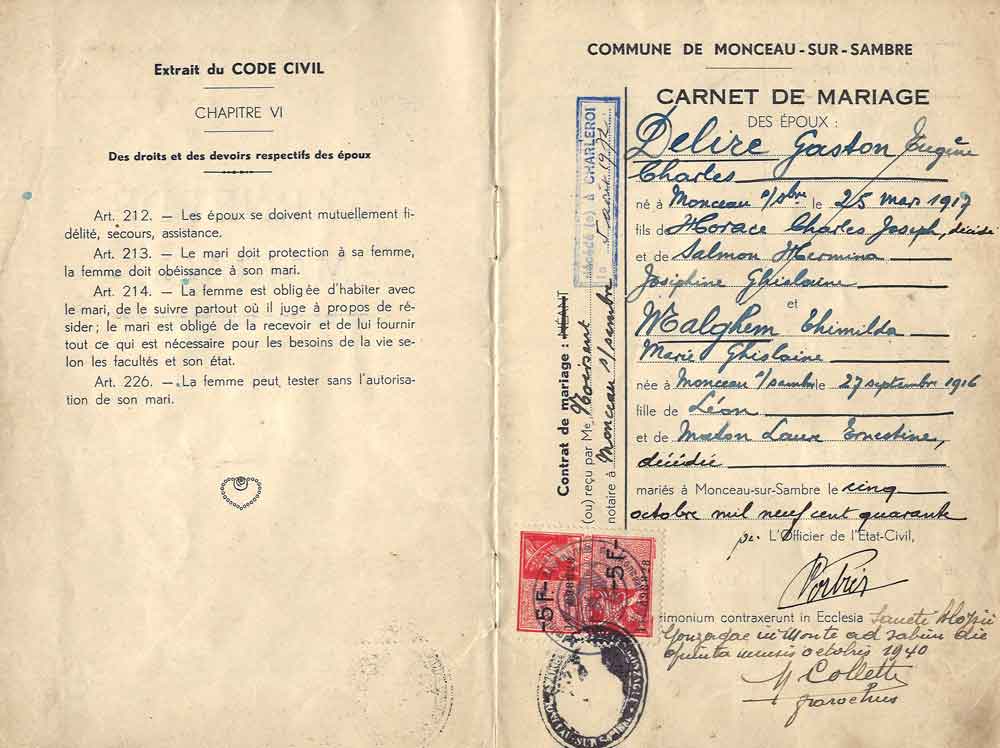 Extrait du CODE CIVIL
CHAPITRE VI
Des droits et des devoirs respectifs des époux
Art. 212. — Les époux se doivent mutuellement fi-
délité, secours, assistance.
Art. 213. — Le mari doit protection à sa femme,
la femme doit obéissance à son mari.
Art. 214. — La femme est obligée d'habiter avec
le mari, de le suivre partout où il juge à propos de ré-
sider ; le mari est obligé de la recevoir et de lui fournir
tout ce qui est nécessaire pour les besoins de la vie se-
lon les facultés et son état.
Art. 226. — La femme peut tester sans l'autorisa-
tion de son mari.
COMMUNE DE MONCEAU-SUR-SAMBRE
CARNET DE MARIAGE
DES ÉPOUX :
Delire Gaston Eugène
Charles
né à Monceau s/sbre le 25 mars 1917
fils de Horace Charles Joseph, décédé
et de Salmon Hermina
Joséphine Ghislaine
et
Walghem Thimilda
Marie Ghislaine
née à Monceau s/sambre le 27 septembre 1916
fille de Léon
et de Maton Laure Ernestine,
décédée
mariés à Monceau-sur-Sambre le cinq
octobre mil neuf cent quarante
L'Officier de l'Etat-Civil,
contraxerunt in Ecclesia Sancti Aloysii
Gonzagae in Monte ad Sabim die
quinta mensis octobris 1940
Collette
parochus
Contrat de mariage : NÉANT
(ou) reçu par Me Noirsent
notaire à Monceau s/sambre
décédé (e) à CHARLEROI
le 5
-5F-
-5F-